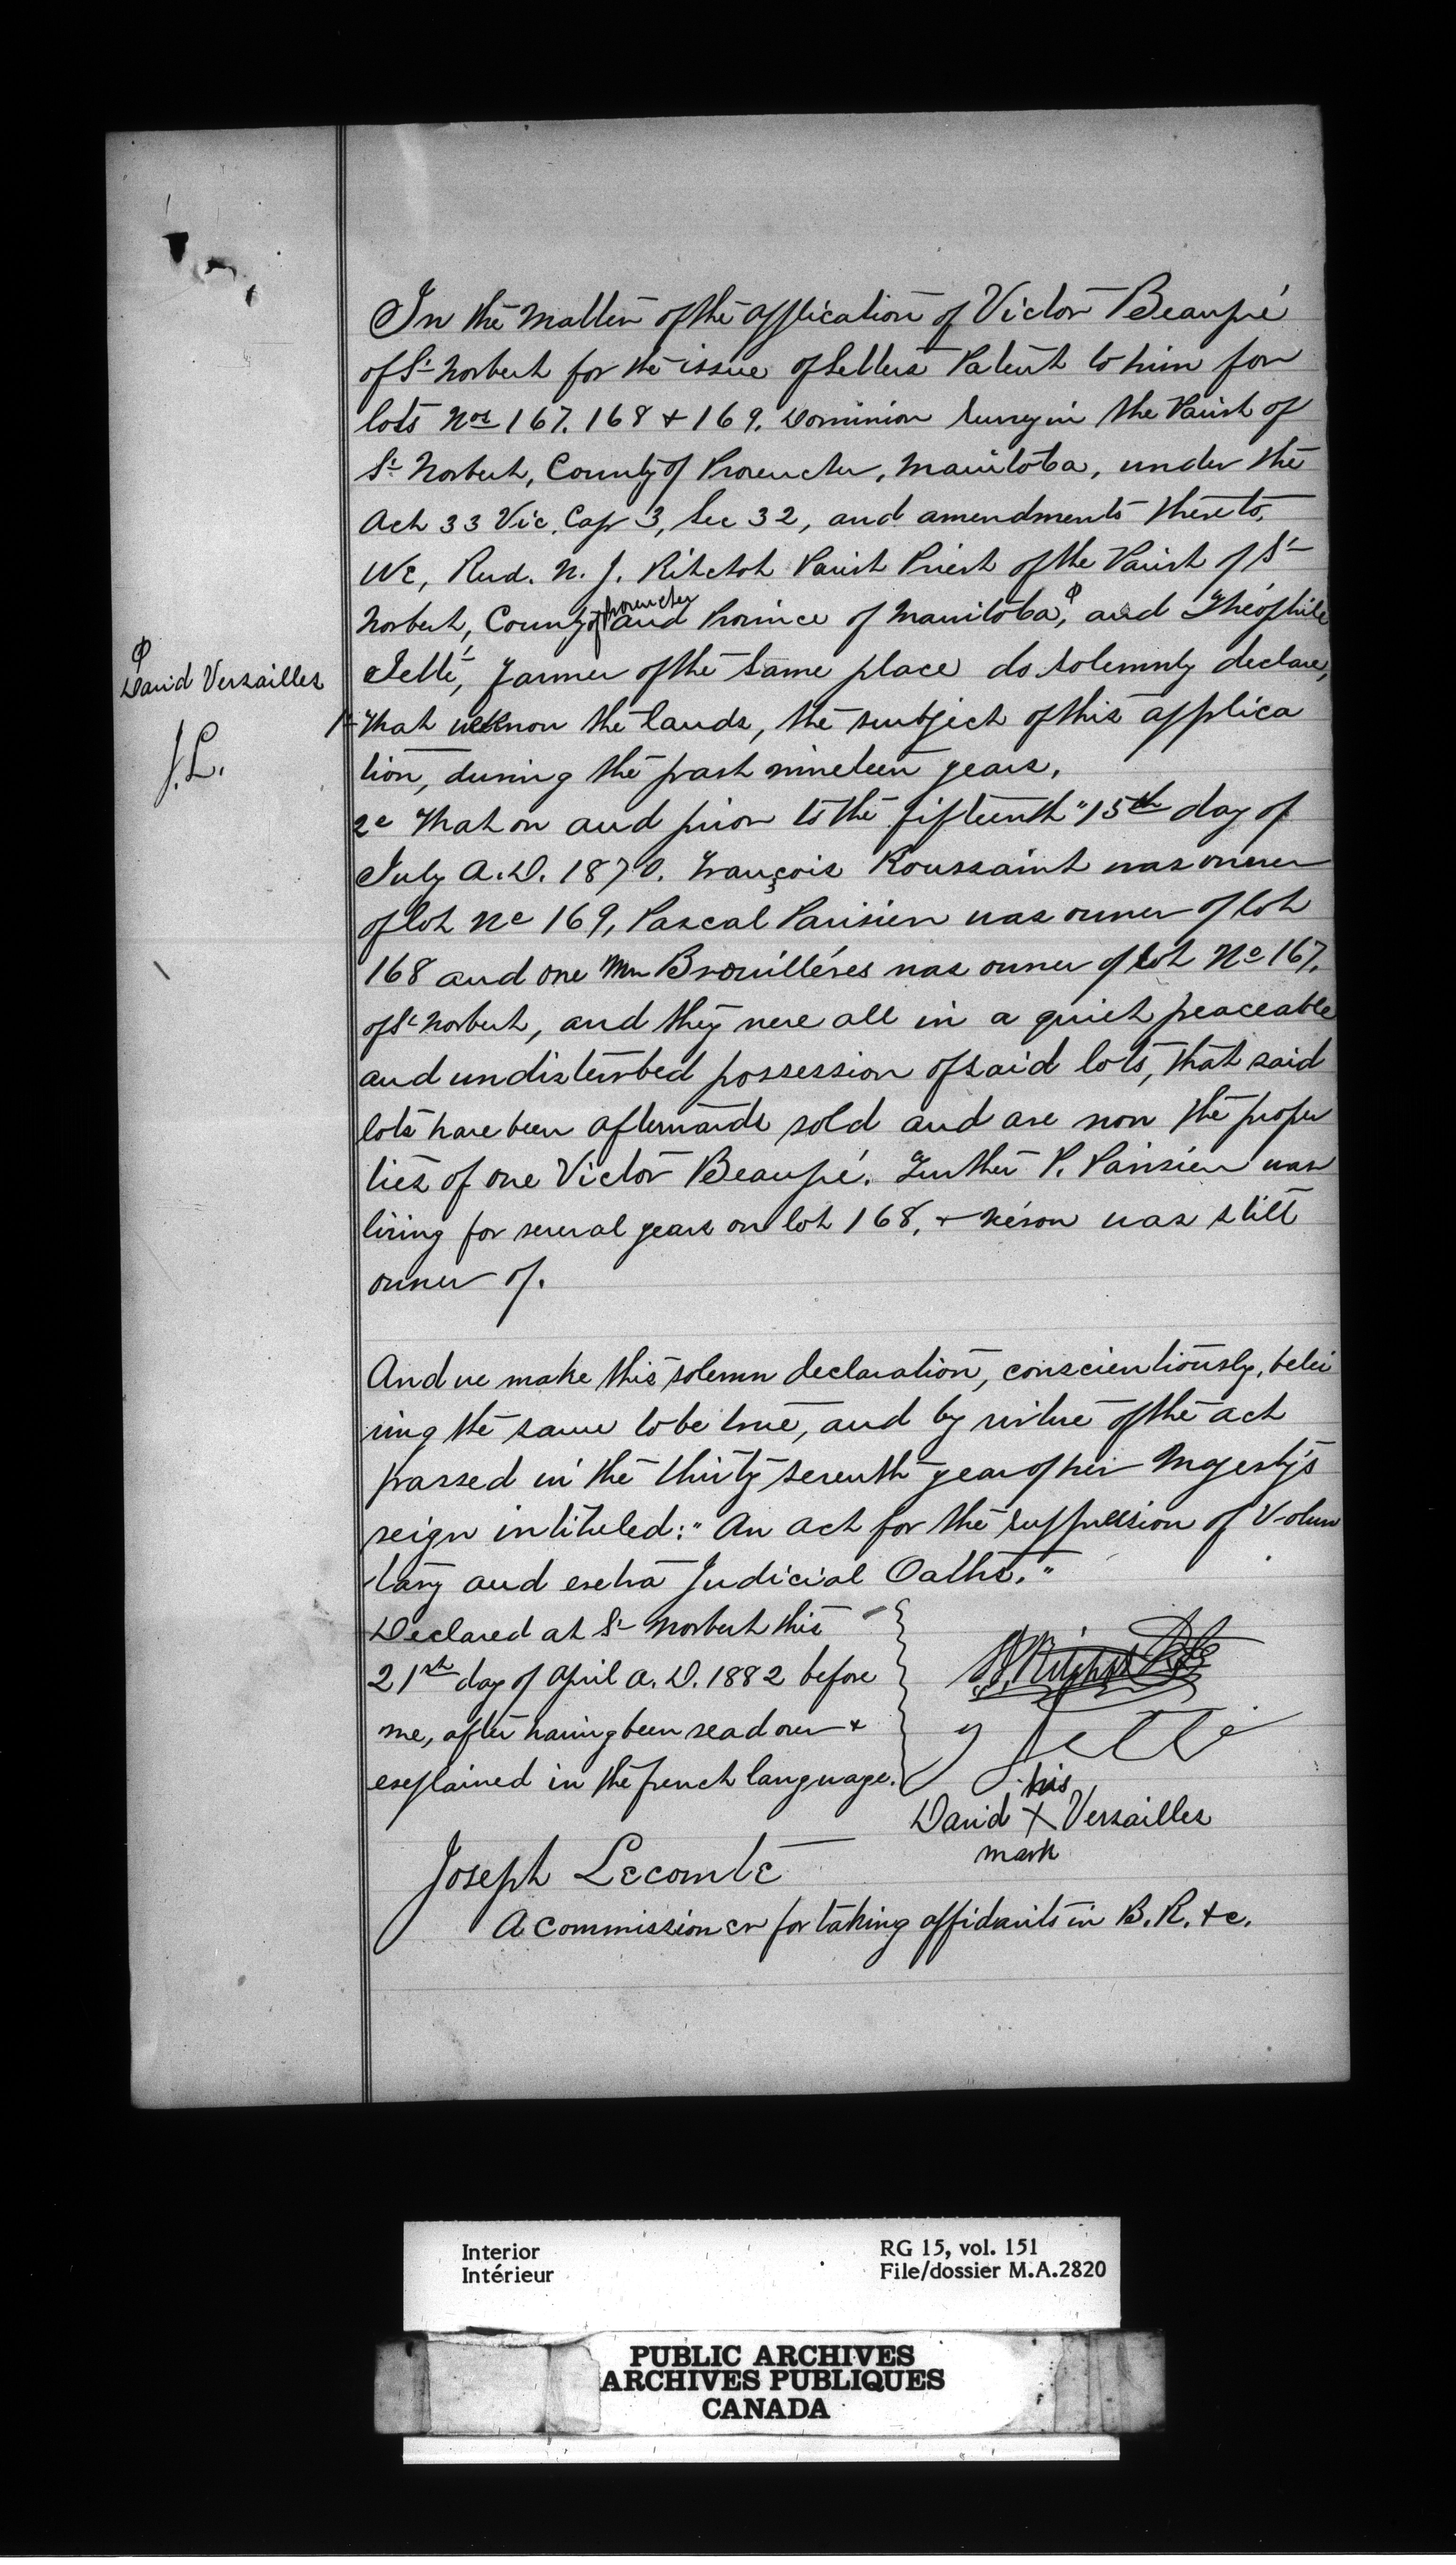 In the Matter of the application of Victor Beaupré
of St Norbert for the issue of Letters Patent to him for
lots Nos 167. 168 & 169. Dominion Survey in the Parish of
St Norbert, County of Provencher, Manitoba, under the
Act 33 Vic. Cap 3, Sec 32, and amendments thereto,
We, Revd. N. J. Ritchot Parish Priest of the Parish of St
Provencher
Norbert, County of and Province of Manitoba, φ and Théophile
φ
David Versailles
J.L.
Jetté, farmer of the same place do solemnly declare,
1º That we know the lands, the subject of this applica
tion, during the past nineteen years.
2º That on and prior to the fifteenth "15th day of
July A.D. 1870. François Roussaint was owner
of lot No 169, Pascal Parisien was owner of lot
168 and one Mr Brouillères was owner of lot No 167.
of St Norbert, and they were all in a quiet peaceable
and undisturbed possession of said lots, that said
lots have been afterwards sold and are now the proper
ties of one Victor Beaupré. Further P. Parisien was
living for several years on lot 168, & Néron was still
owner of.
And we make this solemn declaration, conscientiously, belei
ving the same to be true, and by virtue of the act
passed in the thirty seventh year of her Majesty's
reign intituled: "An act for the suppression of Volun
tary and extra Judicial Oaths."
Declared at St Norbert this
21st day of April A.D. 1882 before
me, after having been read over &
explained in the french language.
Jetté
his
David X Versailles
mark
Joseph Lecomte
A commissioner for taking affidavits in B. R. &c.
Interior
Intérieur
RG 15, vol. 151
File/dossier M.A.2820
PUBLIC ARCHIVES
ARCHIVES PUBLIQUES
CANADA